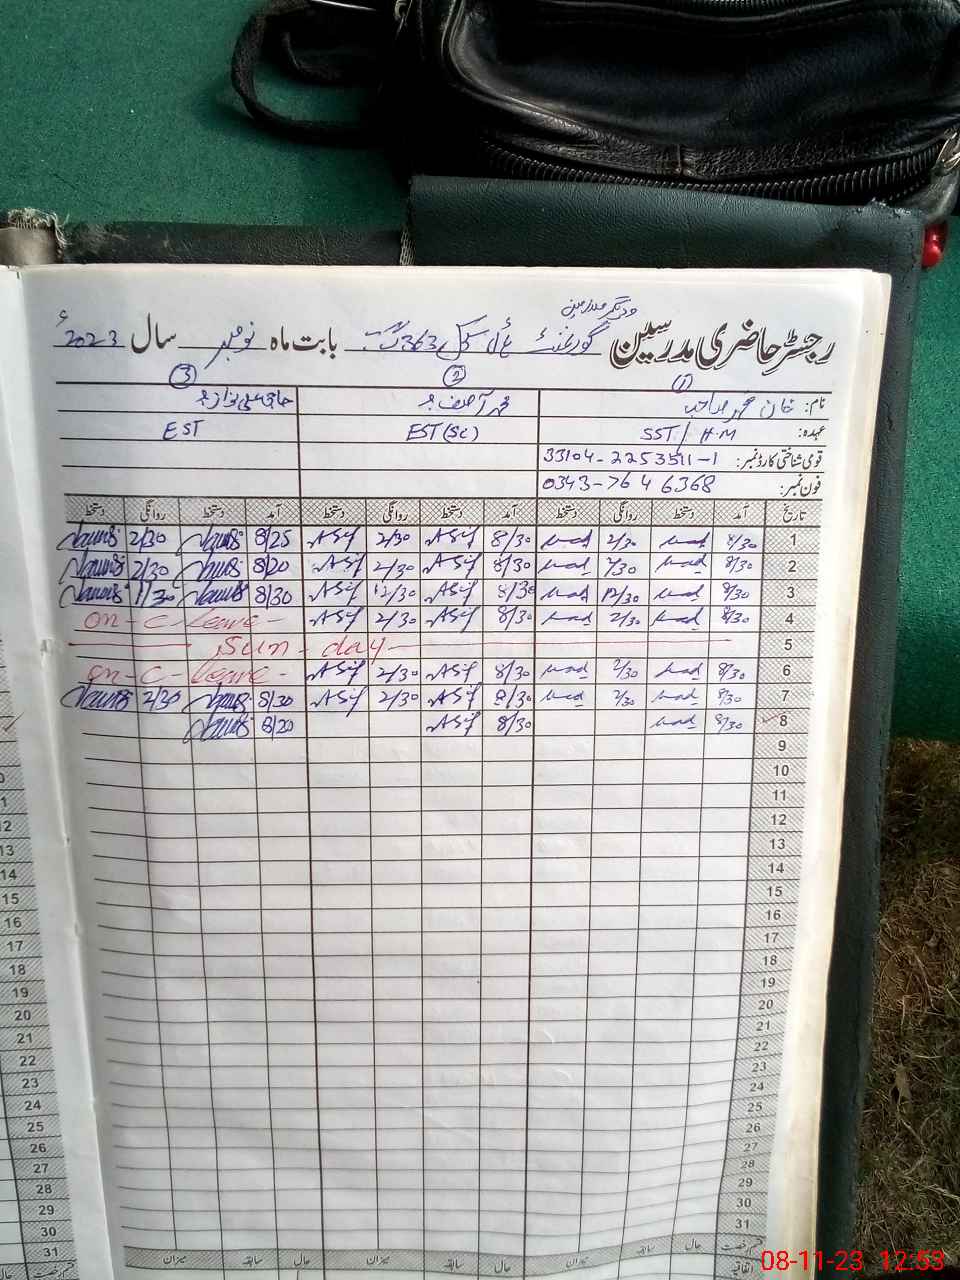 رجسٹر حاضری مدرسین گورنمنٹ 363 گ ب بابت ماہ نومبر سال 2023ء
① ② ③
نام: خان محمد صاحب محمد آصف
عہدہ: SST / H.M EST (Sc) EST
قومی شناختی کارڈ نمبر: 33104-2253511-1
فون نمبر: 0343-7646368
تاریخ آمد دستخط روانگی دستخط آمد دستخط روانگی دستخط آمد دستخط روانگی دستخط
1 8/30 2/30 8/30 Asif 2/30 Asif 8/25 2/30
2 8/30 2/30 8/30 Asif 2/30 Asif 8/20 2/30
3 8/30 12/30 8/30 Asif 12/30 Asif 8/30 11/30
4 8/30 2/30 8/30 Asif 2/30 Asif on-C-leave-
5 Sun-day
6 8/30 2/30 8/30 Asif 2/30 Asif on-C-leave-
7 8/30 2/30 8/30 Asif 2/30 Asif 8/30 2/30
8 8/30 8/30 Asif 8/20
9
10
11
12
13
14
15
16
17
18
19
20
21
22
23
24
25
26
27
28
29
30
31
قسم رخصت حال سابقہ میزان حال سابقہ میزان حال سابقہ میزان
اتفاقیہ
12
13
14
15
16
17
18
19
20
21
22
23
24
25
26
27
28
29
30
31
08-11-23 12:53